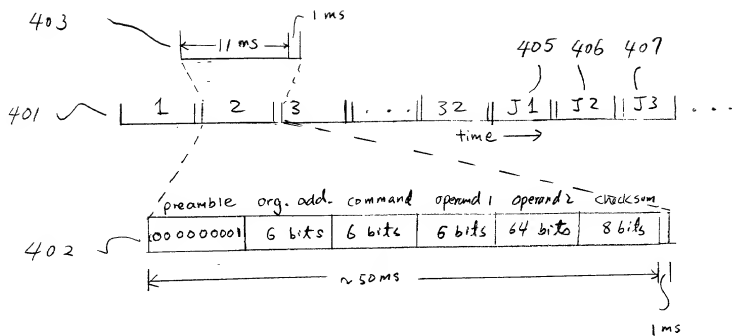 403
1 ms
11 ms
405 406 407
401
1 2 3 . . . 32 J1 J2 J3 . . .
time →
preamble org. add. command operand 1 operand 2 checksum
000000001 6 bits 6 bits 6 bits 64 bits 8 bits
402
~50ms
1 ms